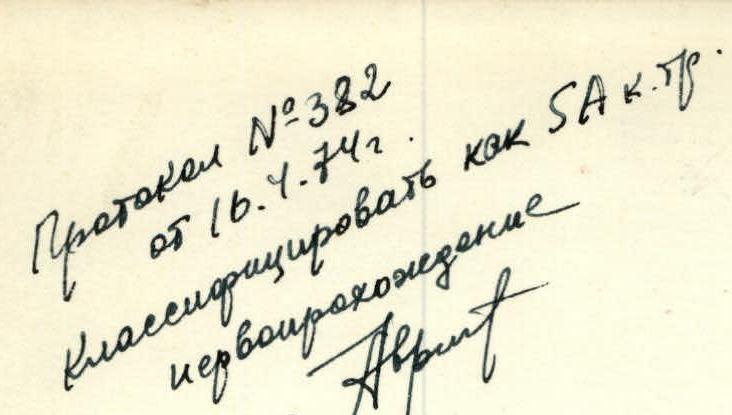 Протокол №382
от 16.4.74г.
Классифицировать как 5А к.тр.
первопрохождение